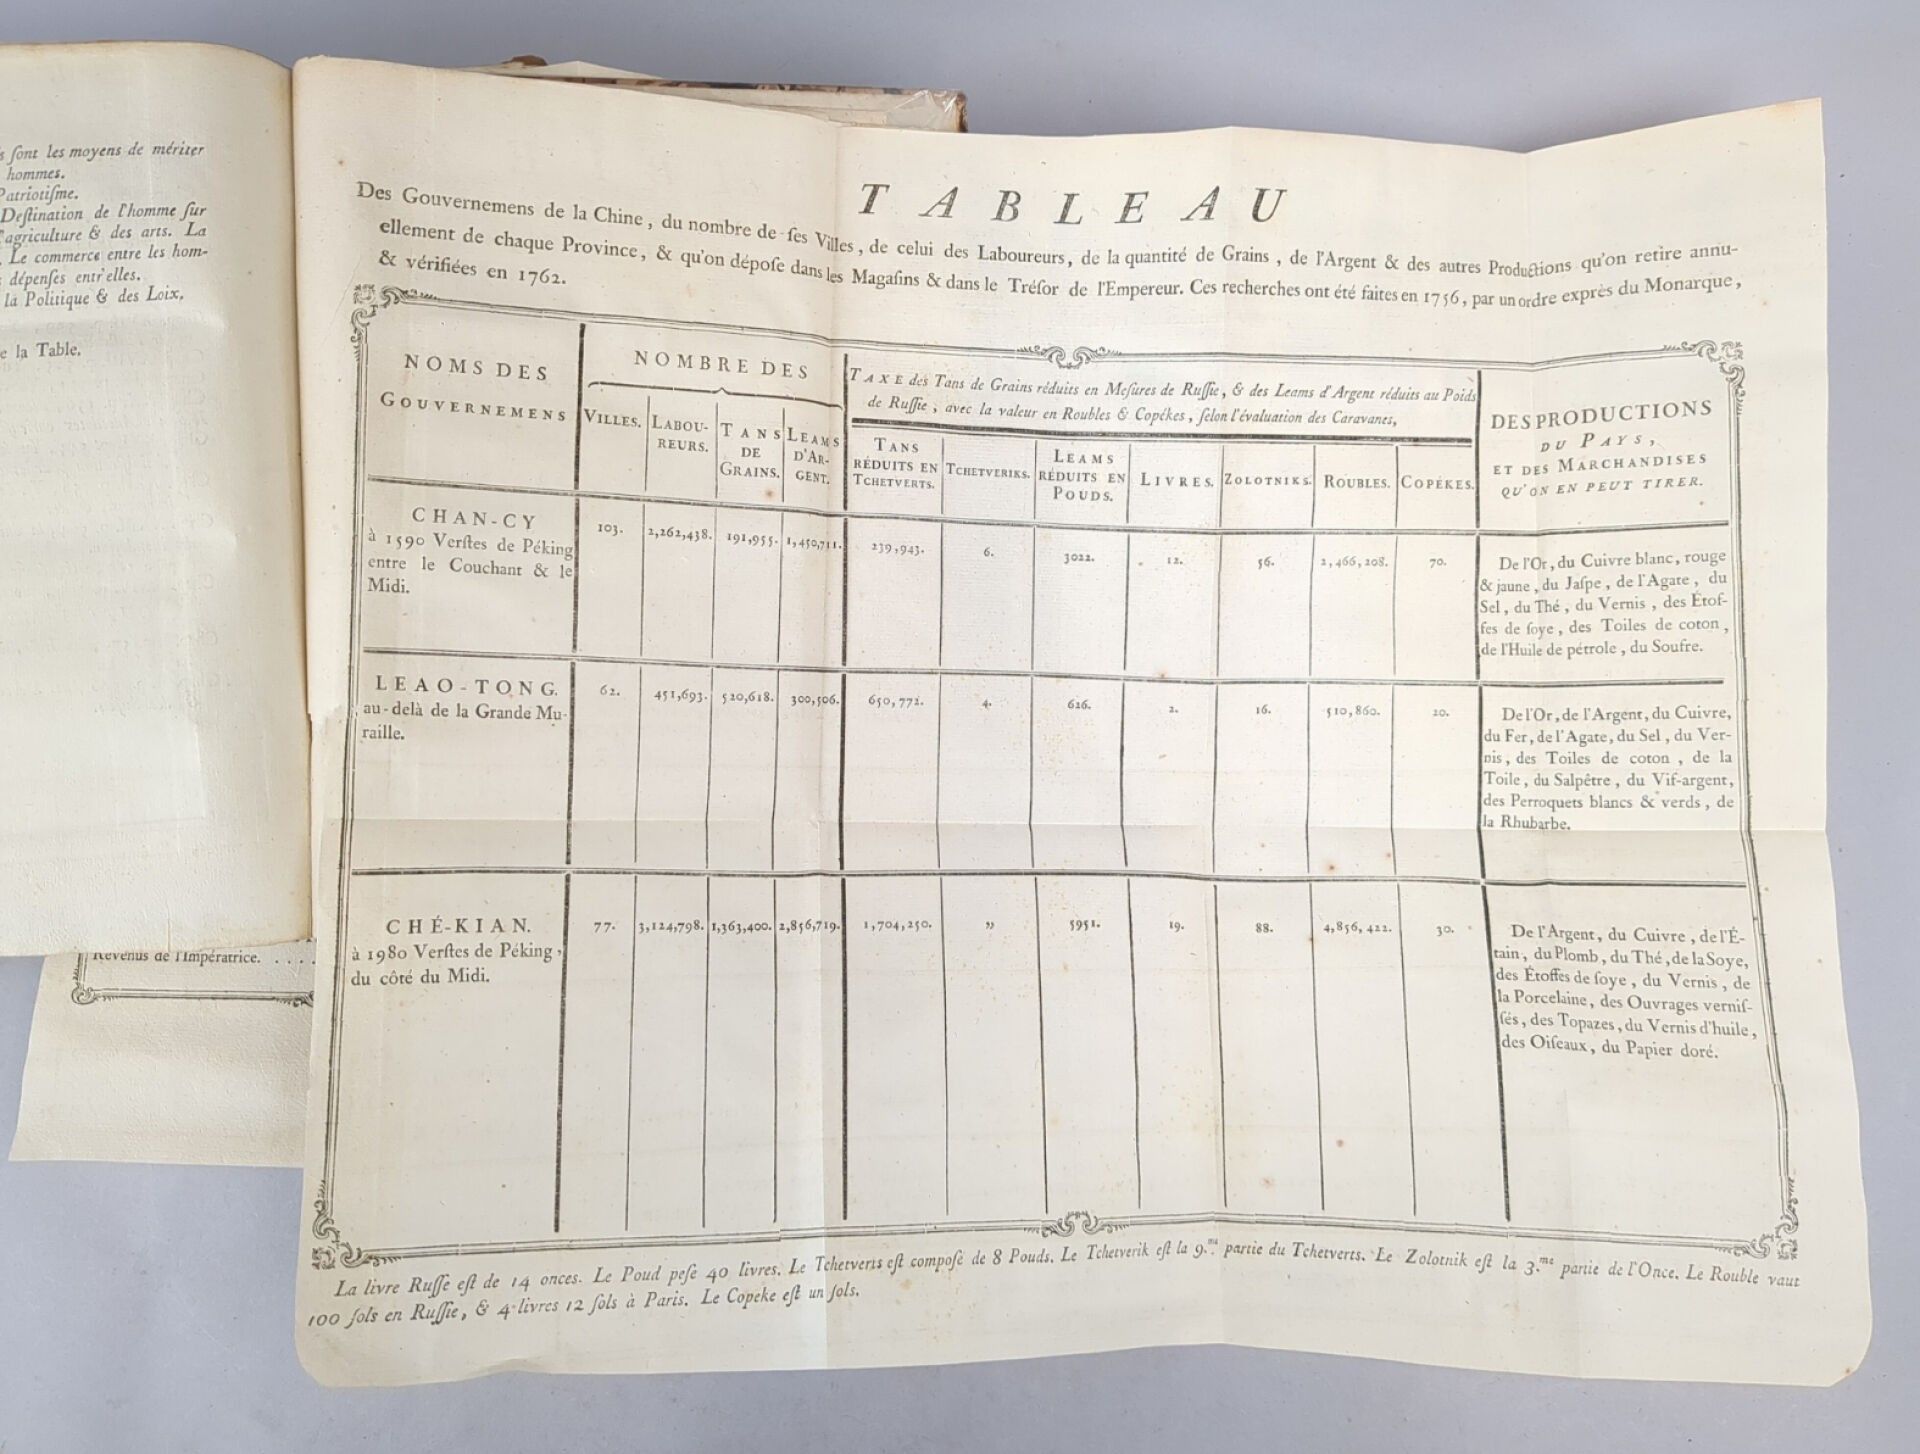 ſont les moyens de mériter
hommes.
Patriotiſme.
Deſtination de l'homme ſur
l'agriculture & des arts. La
Le commerce entre les hom-
dépenſes entr'elles.
la Politique & des Loix.
la Table.
Revenus de l'Impératrice. . . . .
TABLEAU
Des Gouvernemens de la Chine, du nombre de ſes Villes, de celui des Laboureurs, de la quantité de Grains, de l'Argent & des autres Productions qu'on retire annu-
ellement de chaque Province, & qu'on dépoſe dans les Magaſins & dans le Tréſor de l'Empereur. Ces recherches ont été faites en 1756, par un ordre exprès du Monarque,
& vérifiées en 1762.
NOMS DES
GOUVERNEMENS
NOMBRE DES
VILLES.
LABOU-
REURS.
TANS
DE
GRAINS.
LEAMS
D'AR-
GENT.
TAXE des Tans de Grains réduits en Meſures de Ruſſie, & des Leams d'Argent réduits au Poids
de Ruſſie, avec la valeur en Roubles & Copékes, ſelon l'évaluation des Caravanes,
TANS
RÉDUITS EN
TCHETVERTS.
TCHETVERIKS.
LEAMS
RÉDUITS EN
POUDS.
LIVRES.
ZOLOTNIKS.
ROUBLES.
COPÉKES.
DES PRODUCTIONS
DU PAYS,
ET DES MARCHANDISES
QU'ON EN PEUT TIRER.
CHAN-CY
à 1590 Verſtes de Péking
entre le Couchant & le
Midi.
103.
2,262,438.
191,955.
1,450,711.
239,943.
6.
3022.
12.
56.
2,466,208.
70.
De l'Or, du Cuivre blanc, rouge
& jaune, du Jaſpe, de l'Agate, du
Sel, du Thé, du Vernis, des Étof-
fes de ſoye, des Toiles de coton,
de l'Huile de pétrole, du Soufre.
LEAO-TONG.
au-delà de la Grande Mu-
raille.
62.
451,693.
520,618.
300,506.
650,772.
4.
626.
2.
16.
510,860.
20.
De l'Or, de l'Argent, du Cuivre,
du Fer, de l'Agate, du Sel, du Ver-
nis, des Toiles de coton, de la
Toile, du Salpêtre, du Vif-argent,
des Perroquets blancs & verds, de
la Rhubarbe.
CHÉ-KIAN.
à 1980 Verſtes de Péking,
du côté du Midi.
77.
3,124,798.
1,363,400.
2,856,719.
1,704,250.
„
5951.
19.
88.
4,856,422.
30.
De l'Argent, du Cuivre, de l'É-
tain, du Plomb, du Thé, de la Soye,
des Étoffes de ſoye, du Vernis, de
la Porcelaine, des Ouvrages verniſ-
ſés, des Topazes, du Vernis d'huile,
des Oiſeaux, du Papier doré.
La livre Ruſſe eſt de 14 onces. Le Poud peſe 40 livres. Le Tchetverts eſt compoſé de 8 Pouds. Le Tchetverik eſt la 9.me partie du Tchetverts. Le Zolotnik eſt la 3.me partie de l'Once. Le Rouble vaut
100 ſols en Ruſſie, & 4 livres 12 ſols à Paris. Le Copeke eſt un ſols.